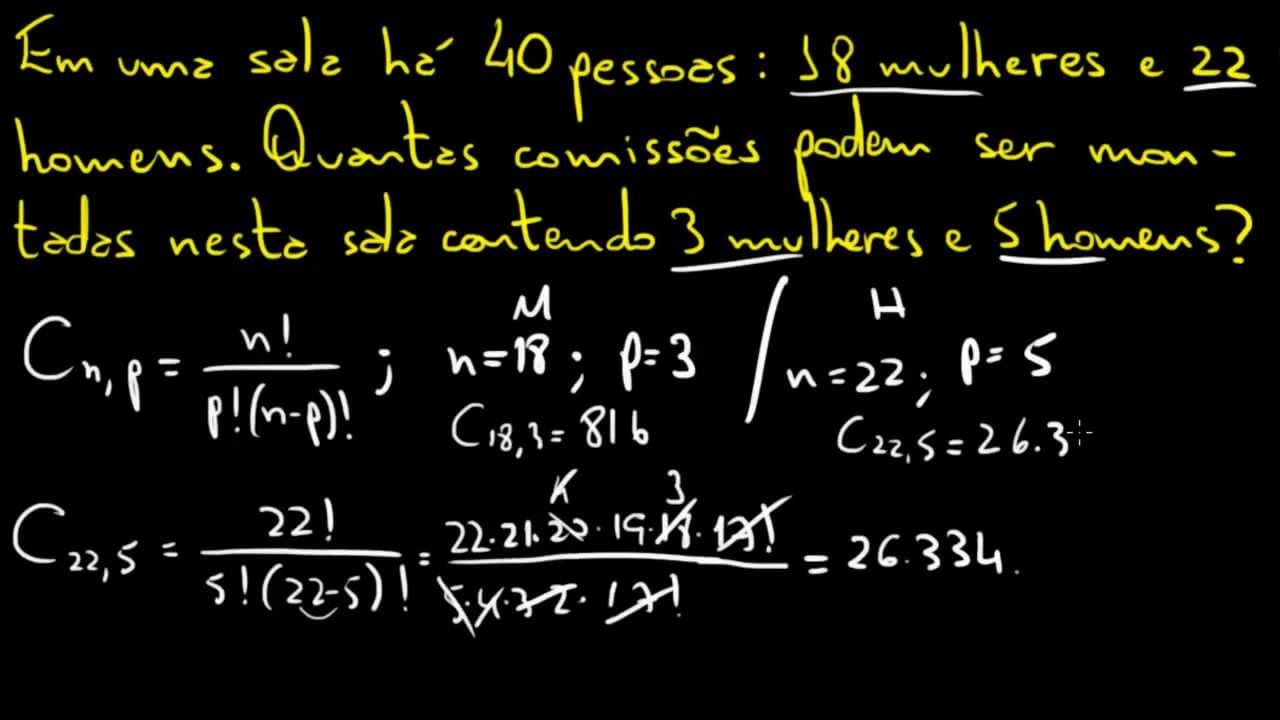 Em uma sala há 40 pessoas: 18 mulheres e 22
homens. Quantas comissões podem ser mon-
tadas nesta sala contendo 3 mulheres e 5 homens?
M / H
C n,p = n! / p!(n-p)! ; n=18 ; p=3 / n=22 ; p=5
C18,3 = 816 C22,5 = 26.3
1 3
C22,5 = 22! / 5!(22-5)! = 22.21.20.19.18.17! / 5.4.3.2.17! = 26.334.